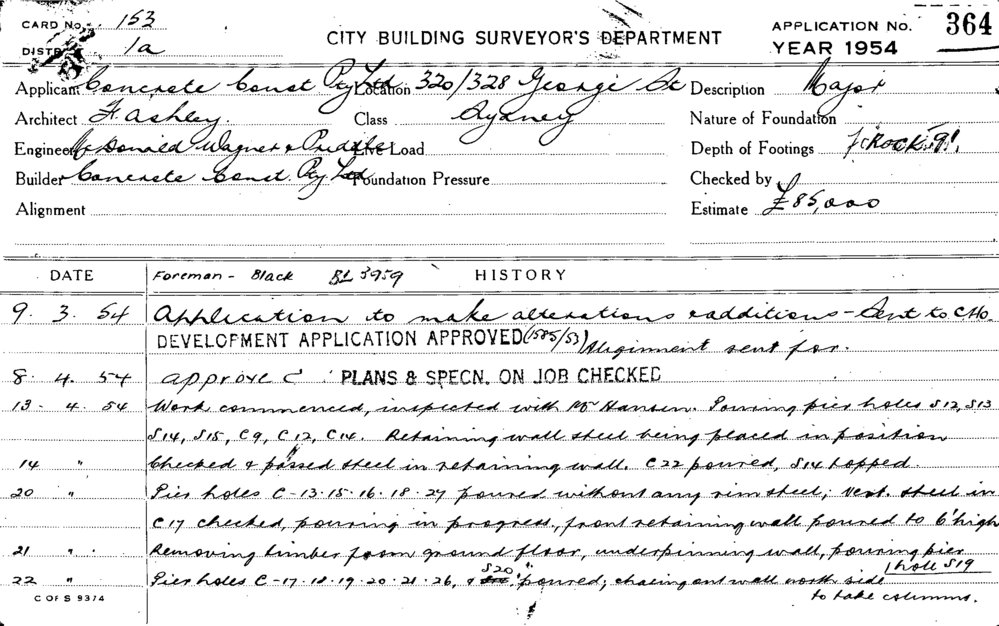 CARD No. 153
CITY BUILDING SURVEYOR'S DEPARTMENT
APPLICATION No. 364
DISTRICT 1a
YEAR 1954
Applicant Concrete Const Pty Ltd Location 320/328 George St Description Major
Architect F. Ashley. Class Sydney Nature of Foundation
Engineer McDonald Wagner & Priddle Live Load Depth of Footings Rock 9'.
Builder Concrete Const. Pty Ltd Foundation Pressure Checked by
Alignment Estimate £85,000
DATE Foreman - Black BL 3959 HISTORY
9. 3. 54 Application to make alterations & additions - Sent to CHO.
DEVELOPMENT APPLICATION APPROVED (1585/53) Alignment sent for.
8. 4. 54 approved PLANS & SPECN. ON JOB CHECKED
13. 4. 54 Work commenced, inspected with Mr Hansen. Pouring pier holes S12, S13
S14, S15, C9, C12, C14. Retaining wall steel being placed in position
14 " Checked & passed steel in retaining wall. C22 poured, S14 topped.
20 " Pier holes C-13-15-16-18-27 poured without any rim steel; Vert. steel in
C17 checked, pouring in progress, front retaining wall poured to 6' high
21 " Removing timber from ground floor, underpinning wall, pouring pier
hole S19
22 " Pier holes C-17-18-19-20-21-26, & S20 poured; chasing out wall north side
to take columns.
C OF S 9374